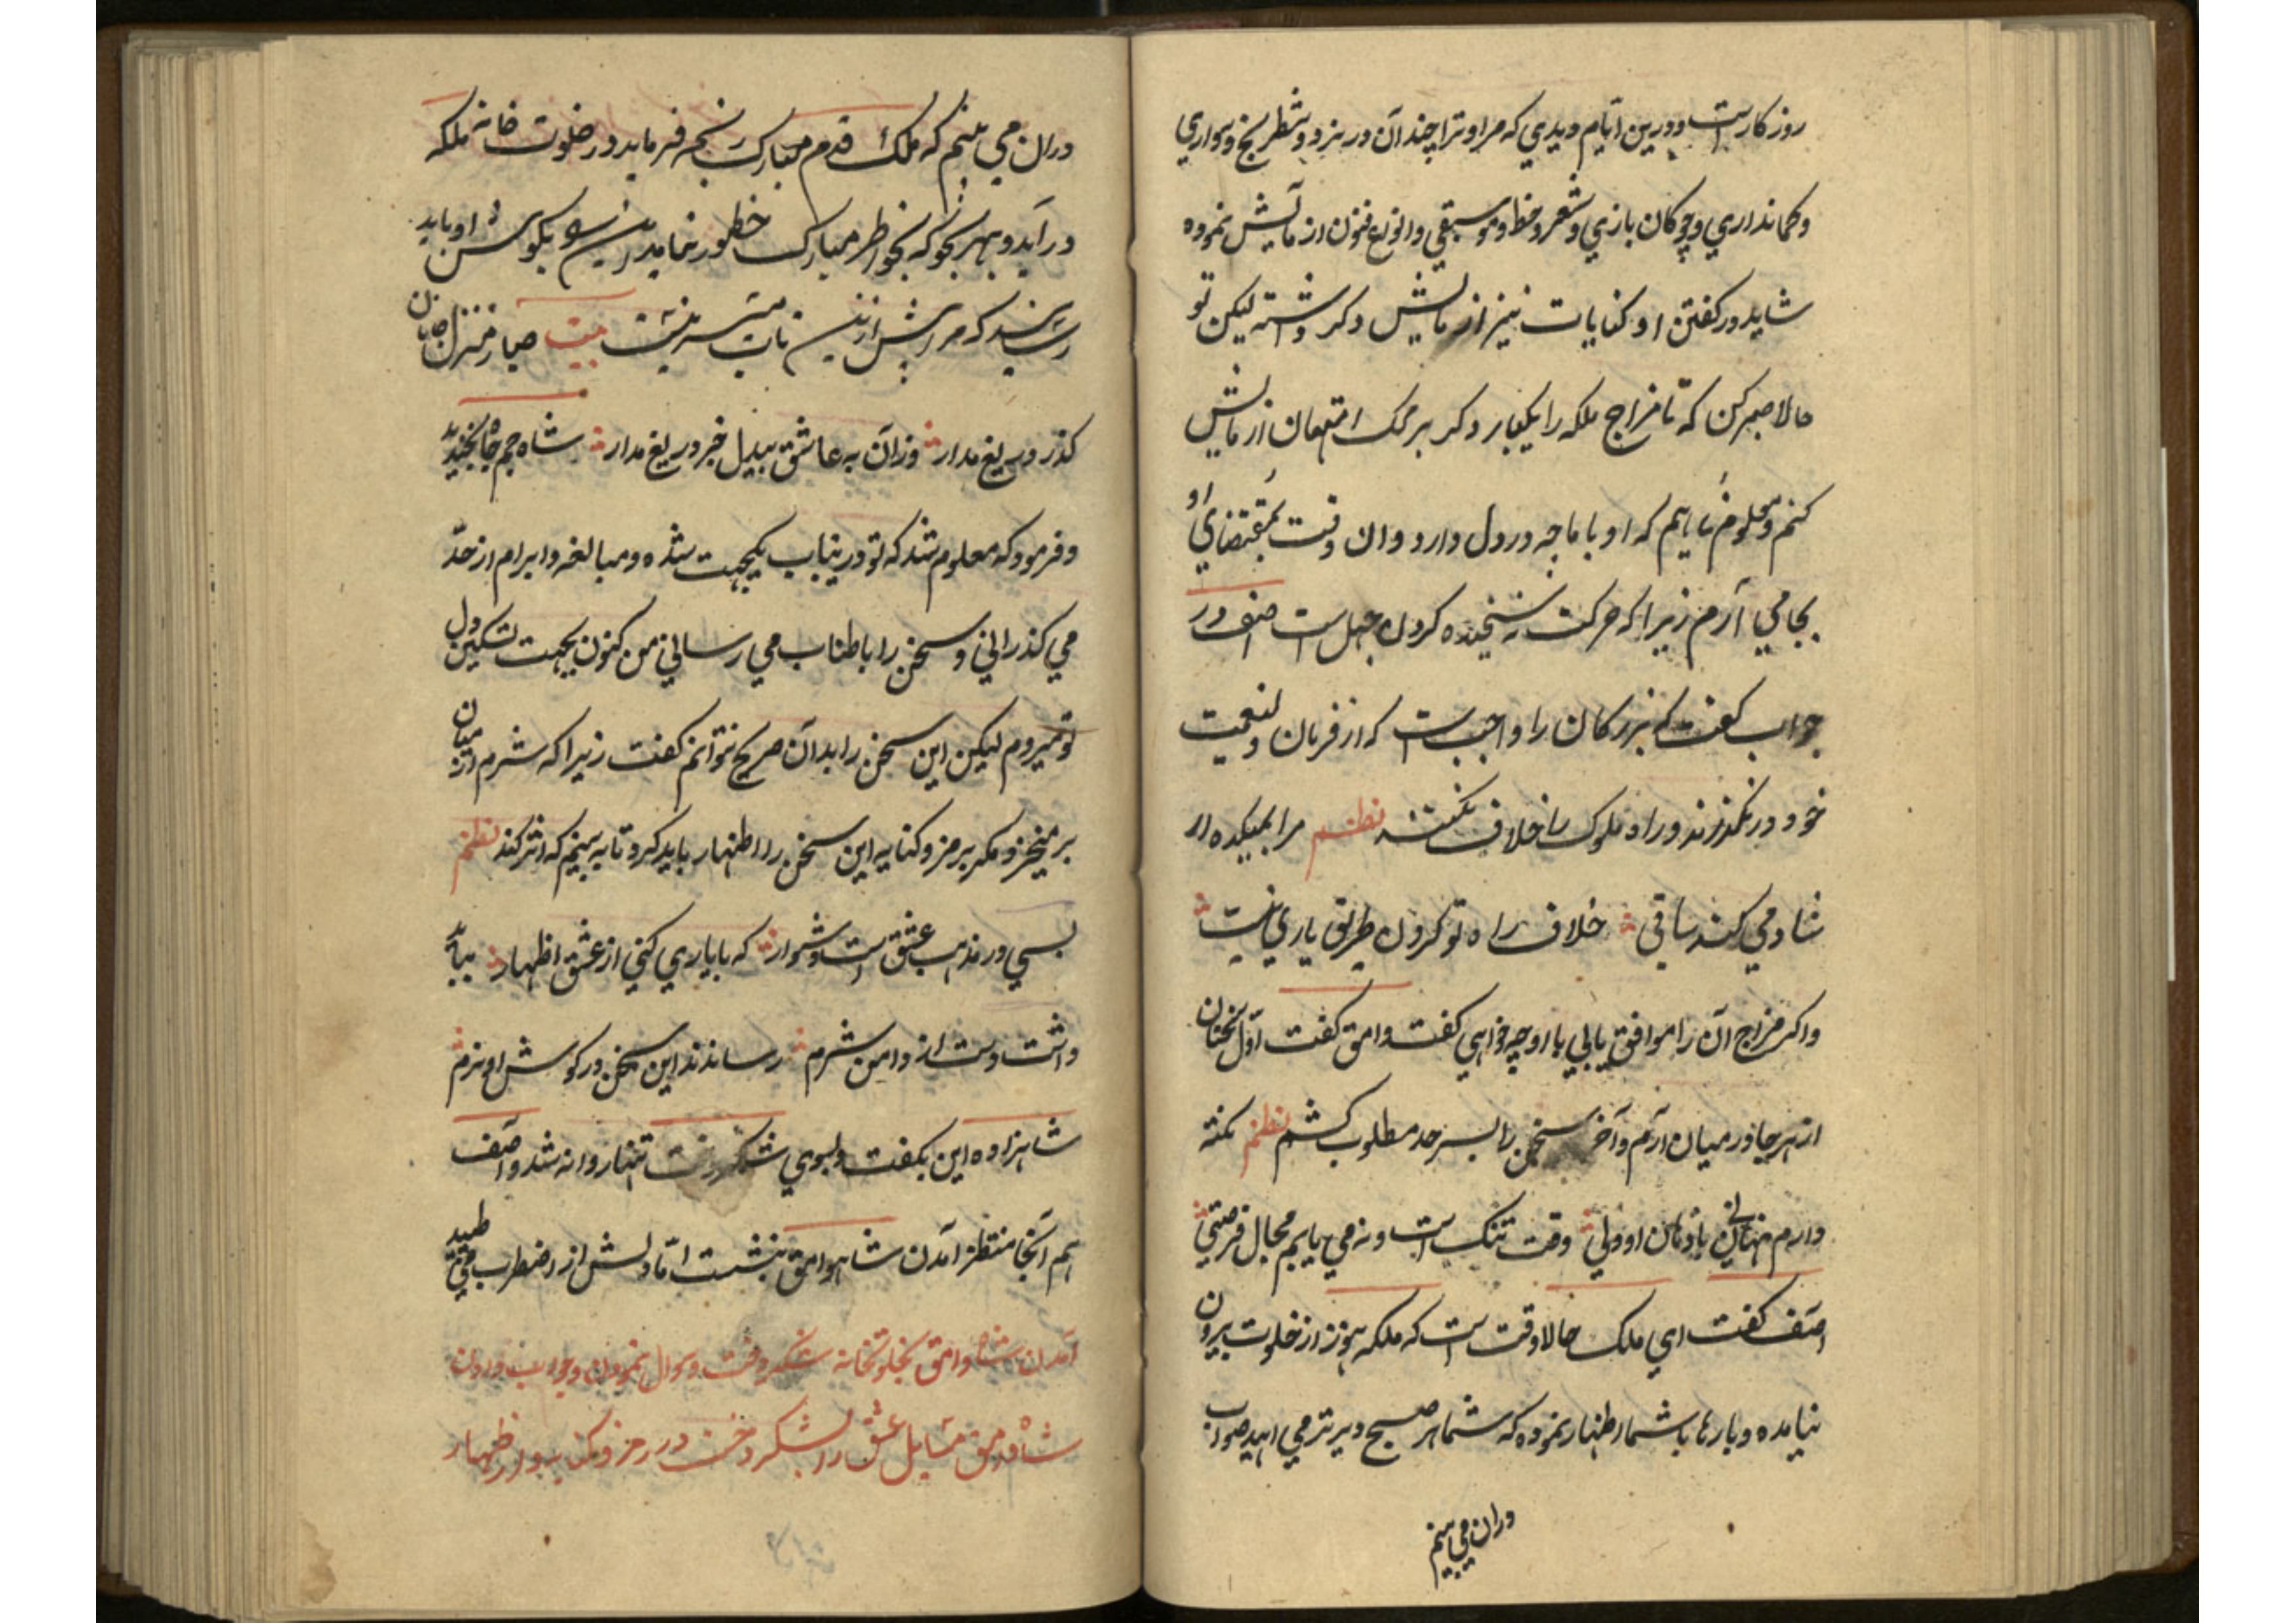 روزکارست و درین ایام دیدی که مرا و ترا چند آن در نرد و شطرنج و سواری
و کمانداری و چوکان بازی و شعر و خط و موسیقی و انواع فنون ازمایش نموده
شاید در کفتن او کنایات نیز ازمایش دکر داشته لیکن تو
حالا صبر کن که تا مزاج ملکه را یکبار دکر بر محک امتحان ازمایش
کنم و معلوم نمایم که او با ما چه در دل دارد و ان وقت بمقتضای او
بجا می آرم زیرا که حرکت نه سنجیده کردن جهل است اصف در
جواب کفت که بزرکان را واجبست که از فرمان ولینعمت
خود در نکذرند و راه ملوک را خلاف نکنند نظم مرا بمیکده ار
شاد می کند ساقی خلاف راه تو کردن طریق یاری نیست
و اکر مزاج آن را موافق یابی با او چه خواهی کفت وامق کفت اول سخنان
از هر جا در میان آرم و آخر سخن را بسرحد مطلوب کشم نظم نکته
دارم نهانی با دهان او ولی وقت تنک است و نه می یابم مجال فرصتی
اصف کفت ای ملک حالا وقت است که ملکه هنوز از خلوت بیرون
نیامده و بارها با شما اظهار نموده که شما هر صبح دیرتر می ایید صواب
دران می بینم
دران می بینم که ملک قدم مبارک رنجه فرماید و در خلوت خانه ملکه
در آید و بهر نحو که بخواطر مبارک خطور نماید این سخن بکوش او باید
رسانید که مرا بیش ازین تاب نیست بیت صبا ز منزل جانان
کذر دریغ مدار وزان به عاشق بیدل خبر دریغ مدار شاه جم جاه بخندید
و فرمود که معلوم شد که تو درینباب یکجهت شده و مبالغه و ابرام از حد
می کذرانی و سخن را باطناب می رسانی من کنون بجهت تسکین دل
تو میروم لیکن این سخن را بدان صریح نتوانم کفت زیرا که شرم از میان
بر میخیزد مکر برمز و کنایه این سخن را اظهار باید کرد تا به بینم که اثر کند نظم
بسی در مذهب عشق است دشوار که با یاری کنی از عشق اظهار بباید
داشت دست از دامن شرم رساندند این سخن در کوش او نرم
شاهزاده این بکفت و بسوی شکردخت تنها روانه شد و آصف
هم آنجا منتظر آمدن شاه وامق بنشست اما دلش از اضطراب می طپید
آمدن شاه وامق بخلوتخانه شکردخت و سوال نمودن و جواب دادن
شاه وامق مسایل عشق را بشکردخت در رمز و کنایه و اظهار